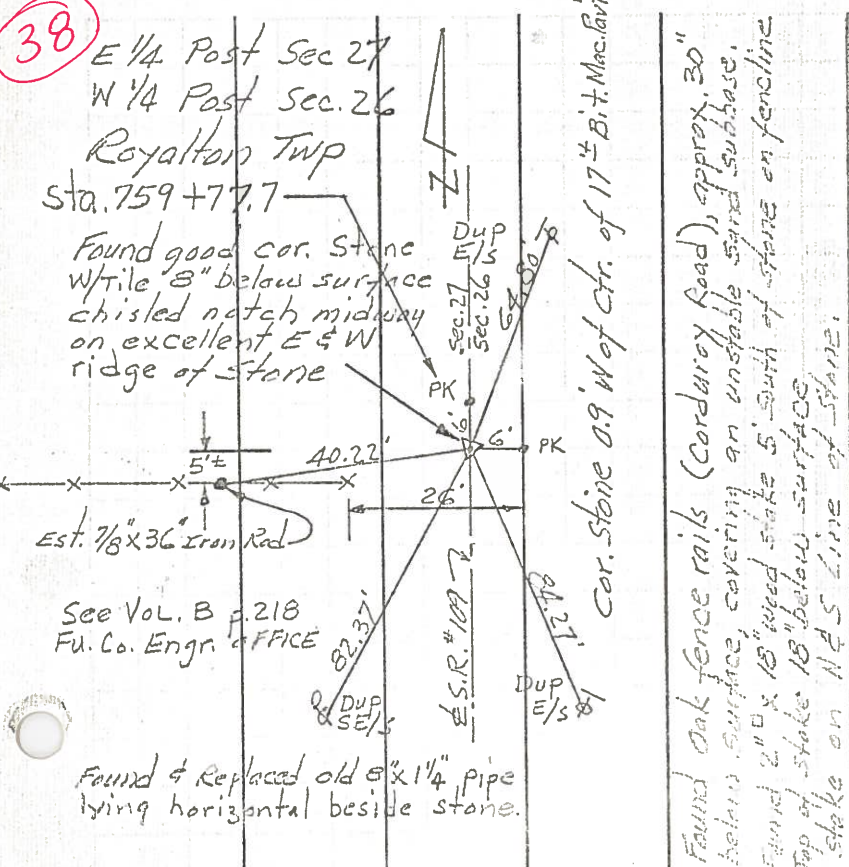 38
E 1/4 Post Sec 27
W 1/4 Post Sec. 26
Royalton Twp
Sta. 759+77.7
Found good cor. Stone
W/Tile 8" below surface
chisled notch midway
on excellent E & W
ridge of Stone
N
Dup
E/S
Sec. 27
Sec. 26
PK
6'
6'
PK
5'±
40.22'
26'
Est. 7/8"x36" Iron Rod
See VOL. B p.218
FU. Co. Engr. OFFICE
82.37'
Dup
SE/S
℄ S.R. #109
Dup
E/S
Found & Replaced old 8"x1 1/4" pipe
lying horizontal beside stone.
Cor. Stone 0.9' W of Ctr. of 17'± Bit. Mac.
Found Oak fence rails (Corduroy Road), approx. 30"
below surface, covering an unstable sand subbase.
Found 2"□ x 18" wood stake 5' South of stone on fencline
Top of stake 18" below surface
stake on N & S Line of Stone.